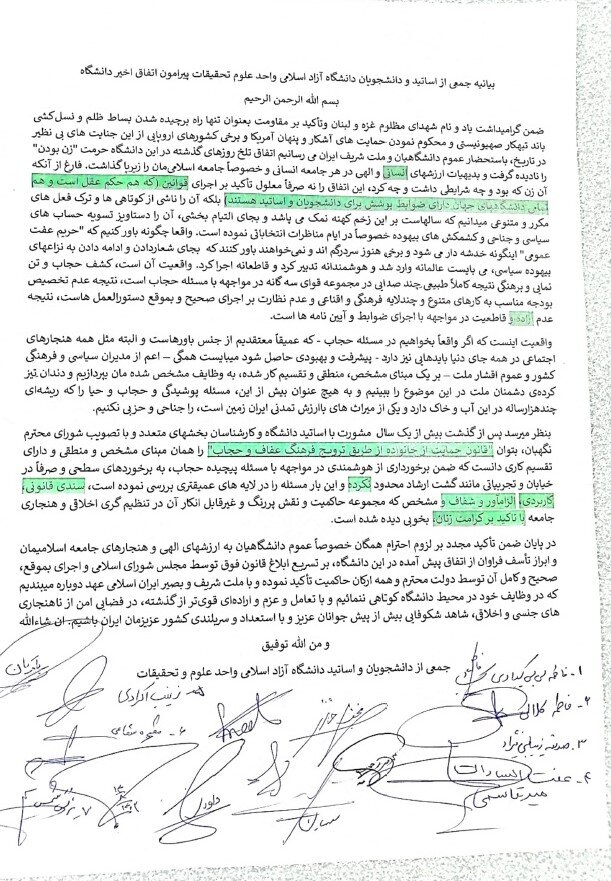 بیانیه جمعی از اساتید و دانشجویان دانشگاه آزاد اسلامی واحد علوم تحقیقات پیرامون اتفاق اخیر دانشگاه
بسم الله الرحمن الرحیم
ضمن گرامیداشت یاد و نام شهدای مظلوم غزه و لبنان وتأکید بر مقاومت بعنوان تنها راه برچیده شدن بساط ظلم و نسل‌کشی
باند تبهکار صهیونیستی و محکوم نمودن حمایت های آشکار و پنهان آمریکا و برخی کشورهای اروپایی از این جنایت های بی نظیر
در تاریخ، باستحضار عموم دانشگاهیان و ملت شریف ایران می رسانیم اتفاق تلخ روزهای گذشته در این دانشگاه حرمت "زن بودن"
را نادیده گرفت و بدیهیات ارزشهای انسانی و الهی در هر جامعه انسانی و خصوصاً جامعه اسلامی‌مان را زیرپا گذاشت. فارغ از آنکه
آن زن که بود و چه شرایطی داشت و چه کرد، این اتفاق را نه صرفاً معلول تأکید بر اجرای قوانین (که هم حکم عقل است و هم
تمامی دانشگاههای جهان دارای ضوابط پوشش برای دانشجویان و اساتید هستند) بلکه آن را ناشی از کوتاهی ها و ترک فعل های
مکرر و متنوعی میدانیم که سالهاست بر این زخم کهنه نمک می پاشد و بجای التیام بخشی، آن را دستاویز تسویه حساب های
سیاسی و جناحی و کشمکش های بیهوده خصوصاً در ایام مناظرات انتخاباتی نموده است. واقعا چگونه باور کنیم که "حریم عفت
عمومی" اینگونه خدشه دار می شود و برخی هنوز سردرگم اند و نمی‌خواهند باور کنند که بجای شعاردادن و ادامه دادن به نزاعهای
بیهوده سیاسی، می بایست عالمانه وارد شد و هوشمندانه تدبیر کرد و قاطعانه اجرا کرد. واقعیت آن است، کشف حجاب و تن
نمایی و برهنگی نتیجه کاملاً طبیعی چند صدایی در مجموعه قوای سه گانه در مواجهه با مسئله حجاب است، نتیجه عدم تخصیص
بودجه مناسب به کارهای متنوع و چندلایه فرهنگی و اقناعی و عدم نظارت بر اجرای صحیح و بموقع دستورالعمل هاست، نتیجه
عدم اراده و قاطعیت در مواجهه با اجرای ضوابط و آیین نامه ها است.
واقعیت اینست که اگر واقعاً بخواهیم در مسئله حجاب - که عمیقاً معتقدیم از جنس باورهاست و البته مثل همه هنجارهای
اجتماعی در همه جای دنیا بایدهایی نیز دارد - پیشرفت و بهبودی حاصل شود میبایست همگی – اعم از مدیران سیاسی و فرهنگی
کشور و عموم اقشار ملت – بر یک مبنای مشخص، منطقی و تقسیم کار شده، به وظایف مشخص شده مان بپردازیم و دندان تیز
کرده‌ی دشمنان ملت در این موضوع را ببینیم و به هیچ عنوان بیش از این، مسئله پوشیدگی و حجاب و حیا را که ریشه‌ای
چندهزارساله در این آب و خاک دارد و یکی از میراث های باارزش تمدنی ایران زمین است، را جناحی و حزبی نکنیم.
بنظر میرسد پس از گذشت بیش از یک سال مشورت با اساتید دانشگاه و کارشناسان بخشهای متعدد و با تصویب شورای محترم
نگهبان، بتوان "قانون حمایت از خانواده از طریق ترویج فرهنگ عفاف و حجاب" را همان مبنای مشخص و منطقی و دارای
تقسیم کاری دانست که ضمن برخورداری از هوشمندی در مواجهه با مسئله پیچیده حجاب، به برخوردهای سطحی و صرفاً در
خیابان و تجربیاتی مانند گشت ارشاد محدود نکرده و این بار مسئله را در لایه های عمیقتری بررسی نموده است، سندی قانونی،
کاربردی، الزام‌آور و شفاف و مشخص که مجموعه حاکمیت و نقش پررنگ و غیرقابل انکار آن در تنظیم گری اخلاق و هنجاری
جامعه با تاکید بر کرامت زنان، بخوبی دیده شده است.
در پایان ضمن تأکید مجدد بر لزوم احترام همگان خصوصاً عموم دانشگاهیان به ارزشهای الهی و هنجارهای جامعه اسلامیمان
و ابراز تأسف فراوان از اتفاق پیش آمده در این دانشگاه، بر تسریع ابلاغ قانون فوق توسط مجلس شورای اسلامی و اجرای بموقع،
صحیح و کامل آن توسط دولت محترم و همه ارکان حاکمیت تأکید نموده و با ملت شریف و بصیر ایران اسلامی عهد دوباره میبندیم
که در وظایف خود در محیط دانشگاه کوتاهی ننمائیم و با تعامل و عزم و اراده‌ای قوی‌تر از گذشته، در فضایی امن از ناهنجاری
های جنسی و اخلاقی، شاهد شکوفایی بیش از پیش جوانان عزیز و با استعداد و سربلندی کشور عزیزمان ایران باشیم. ان شاءالله
و من الله توفیق
جمعی از دانشجویان و اساتید دانشگاه آزاد اسلامی واحد علوم و تحقیقات
۱- فاطمه
۲- فاطمه کلالی
۳. صدیقه
۴- عفت السادات
زینب
داوری